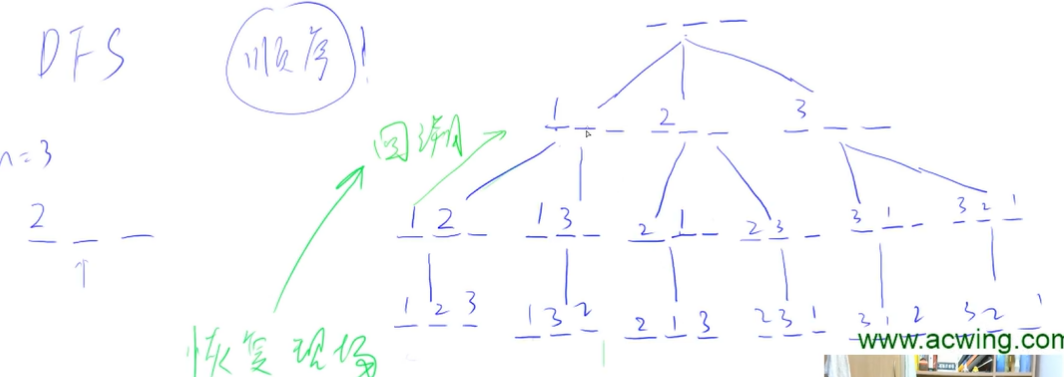 DFS 顺序!
n=3
2 _ _
回溯
恢复现场
_ _ _
1 _ _ 2 _ _ 3 _ _
1 2 _ 1 3 _ 2 1 _ 2 3 _ 3 1 _ 3 2 1
1 2 3 1 3 2 2 1 3 2 3 1 3 1 2 3 2 1
www.acwing.com